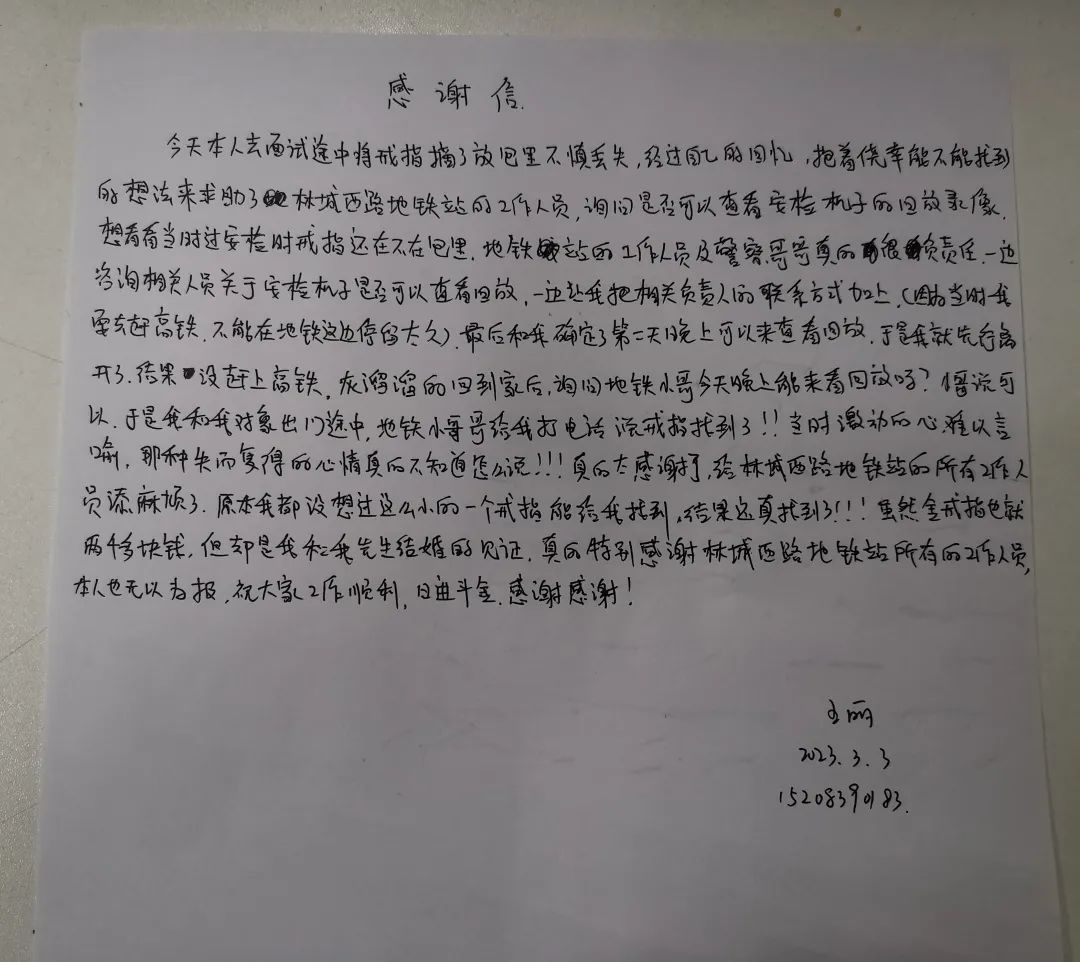 感谢信.
今天本人去面试途中将戒指摘了放包里不慎丢失,经过自己的回忆,抱着侥幸能不能找到
的想法来求助了林城西路地铁站的工作人员,询问是否可以查看安检机子的回放录像,
想看看当时过安检时戒指还在不在包里.地铁站的工作人员及警察哥哥真的很负责任.一边
咨询相关人员关于安检机子是否可以查看回放,一边让我把相关负责人的联系方式加上,(因为当时我
要去赶高铁.不能在地铁这边停留太久).最后和我确定了第二天晚上可以来查看回放.于是我就先行离
开了.结果没赶上高铁.灰溜溜的回到家后,询问地铁小哥今天晚上能来看回放吗?哥说可
以.于是我和我对象出门途中,地铁小哥哥给我打电话说戒指找到了!!当时激动的心.难以言
喻,那种失而复得的心情真的不知道怎么说!!!真的太感谢了,给林城西路地铁站的所有工作人
员添麻烦了.原本我都没想过这么小的一个戒指能给我找到,结果还真找到了!!!虽然金戒指也就
两千多块钱,但却是我和我先生结婚的见证.真的特别感谢林城西路地铁站所有的工作人员,
本人也无以为报,祝大家工作顺利,日进斗金.感谢感谢!
王丽
2023.3.3
15208390183.